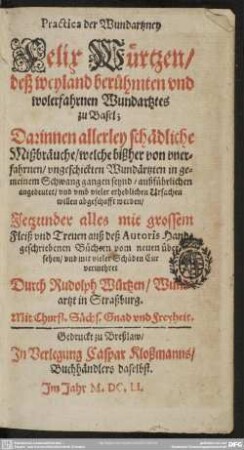 Practica der Wundartzney
Felix Würtzen/
deß weyland berühmten vnd
wolerfahrnen Wundartztes
zu Basel;
Darinnen allerley schädliche
Mißbräuche/welche bißher von vner-
fahrnen/vngeschickten Wundärtzten in ge-
meinem Schwang gangen seynd/außführlichen
angedeutet/vnd vmb vieler erheblichen Vrsachen
willen abgeschafft werden/
Jetzunder alles mit grossem
Fleiß vnd Treuen auß deß Autoris Hand-
geschriebenen Büchern vom neuen über-
sehen/vnd mit vieler Schäden Cur
vermehret
Durch Rudolph Würtzen/Wund-
artzt in Straßburg.
Mit Churfl. Sächs. Gnad vnd Freyheit.
Gedruckt zu Breßlaw/
In Verlegung Caspar Kloßmanns/
Buchhändlers daselbst.
Im Jahr M. DC. LI.